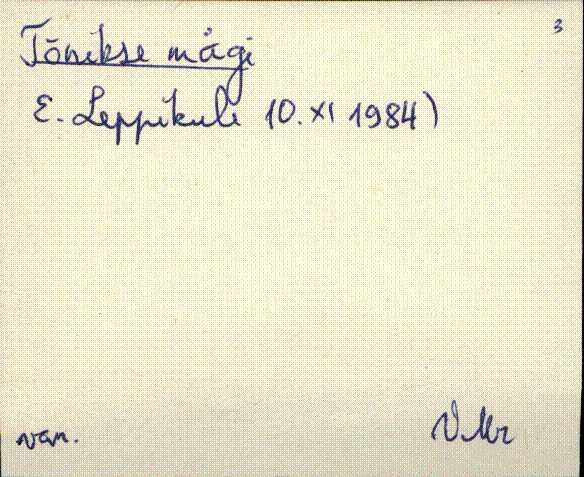 3
Tõnikse mägi
E. Leppikult 10. XI 1984)
van.
VMr